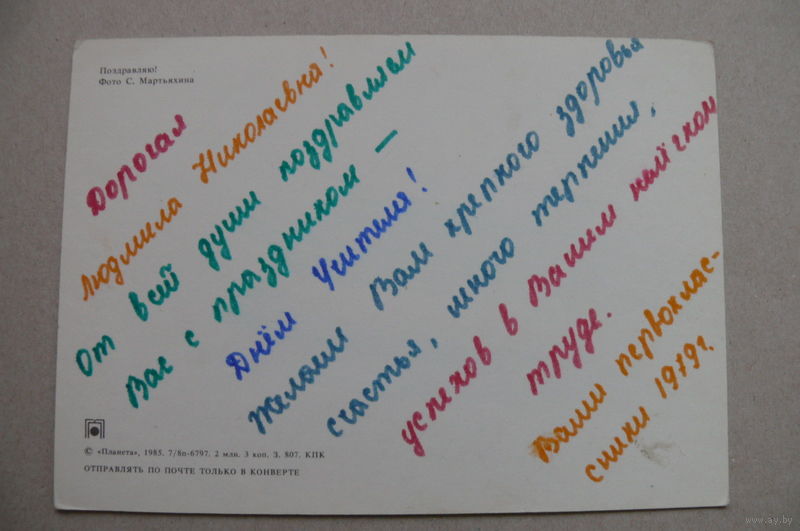 Поздравляю!
Фото С. Мартьяхина
Дорогая
Людмила Николаевна!
От всей души поздравляем
Вас с праздником —
Днём Учителя!
Желаем Вам крепкого здоровья
счастья, много терпения,
успехов в Вашем нелёгком
труде.
Ваши первоклас-
сники 1979г.
© «Планета», 1985. 7/8п-6797. 2 млн. 3 коп. З. 807. КПК
ОТПРАВЛЯТЬ ПО ПОЧТЕ ТОЛЬКО В КОНВЕРТЕ
www.ay.by